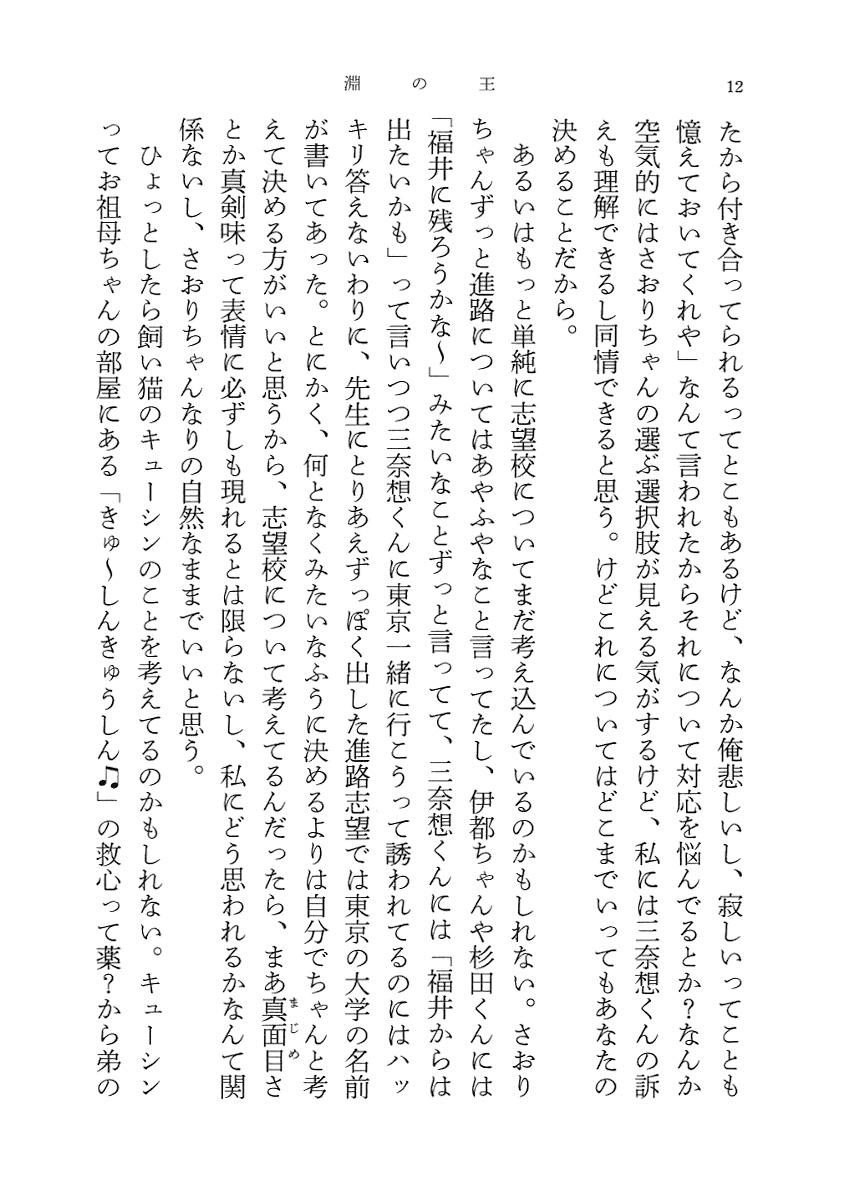 淵の王
12
たから付き合ってられるってとこもあるけど、なんか俺悲しいし、寂しいってことも
憶えておいてくれや」なんて言われたからそれについて対応を悩んでるとか？なんか
空気的にはさおりちゃんの選ぶ選択肢が見える気がするけど、私には三奈想くんの訴
えも理解できるし同情できると思う。けどこれについてはどこまでいってもあなたの
決めることだから。
あるいはもっと単純に志望校についてまだ考え込んでいるのかもしれない。さおり
ちゃんずっと進路についてはあやふやなこと言ってたし、伊都ちゃんや杉田くんには
「福井に残ろうかな〜」みたいなことずっと言ってて、三奈想くんには「福井からは
出たいかも」って言いつつ三奈想くんに東京一緒に行こうって誘われてるのにはハッ
キリ答えないわりに、先生にとりあえずっぽく出した進路志望では東京の大学の名前
が書いてあった。とにかく、何となくみたいなふうに決めるよりは自分でちゃんと考
えて決める方がいいと思うから、志望校について考えてるんだったら、まあ真面目さ
まじめ
とか真剣味って表情に必ずしも現れるとは限らないし、私にどう思われるかなんて関
係ないし、さおりちゃんなりの自然なままでいいと思う。
ひょっとしたら飼い猫のキューシンのことを考えてるのかもしれない。キューシン
ってお祖母ちゃんの部屋にある「きゅ〜しんきゅうしん♫」の救心って薬？から弟の